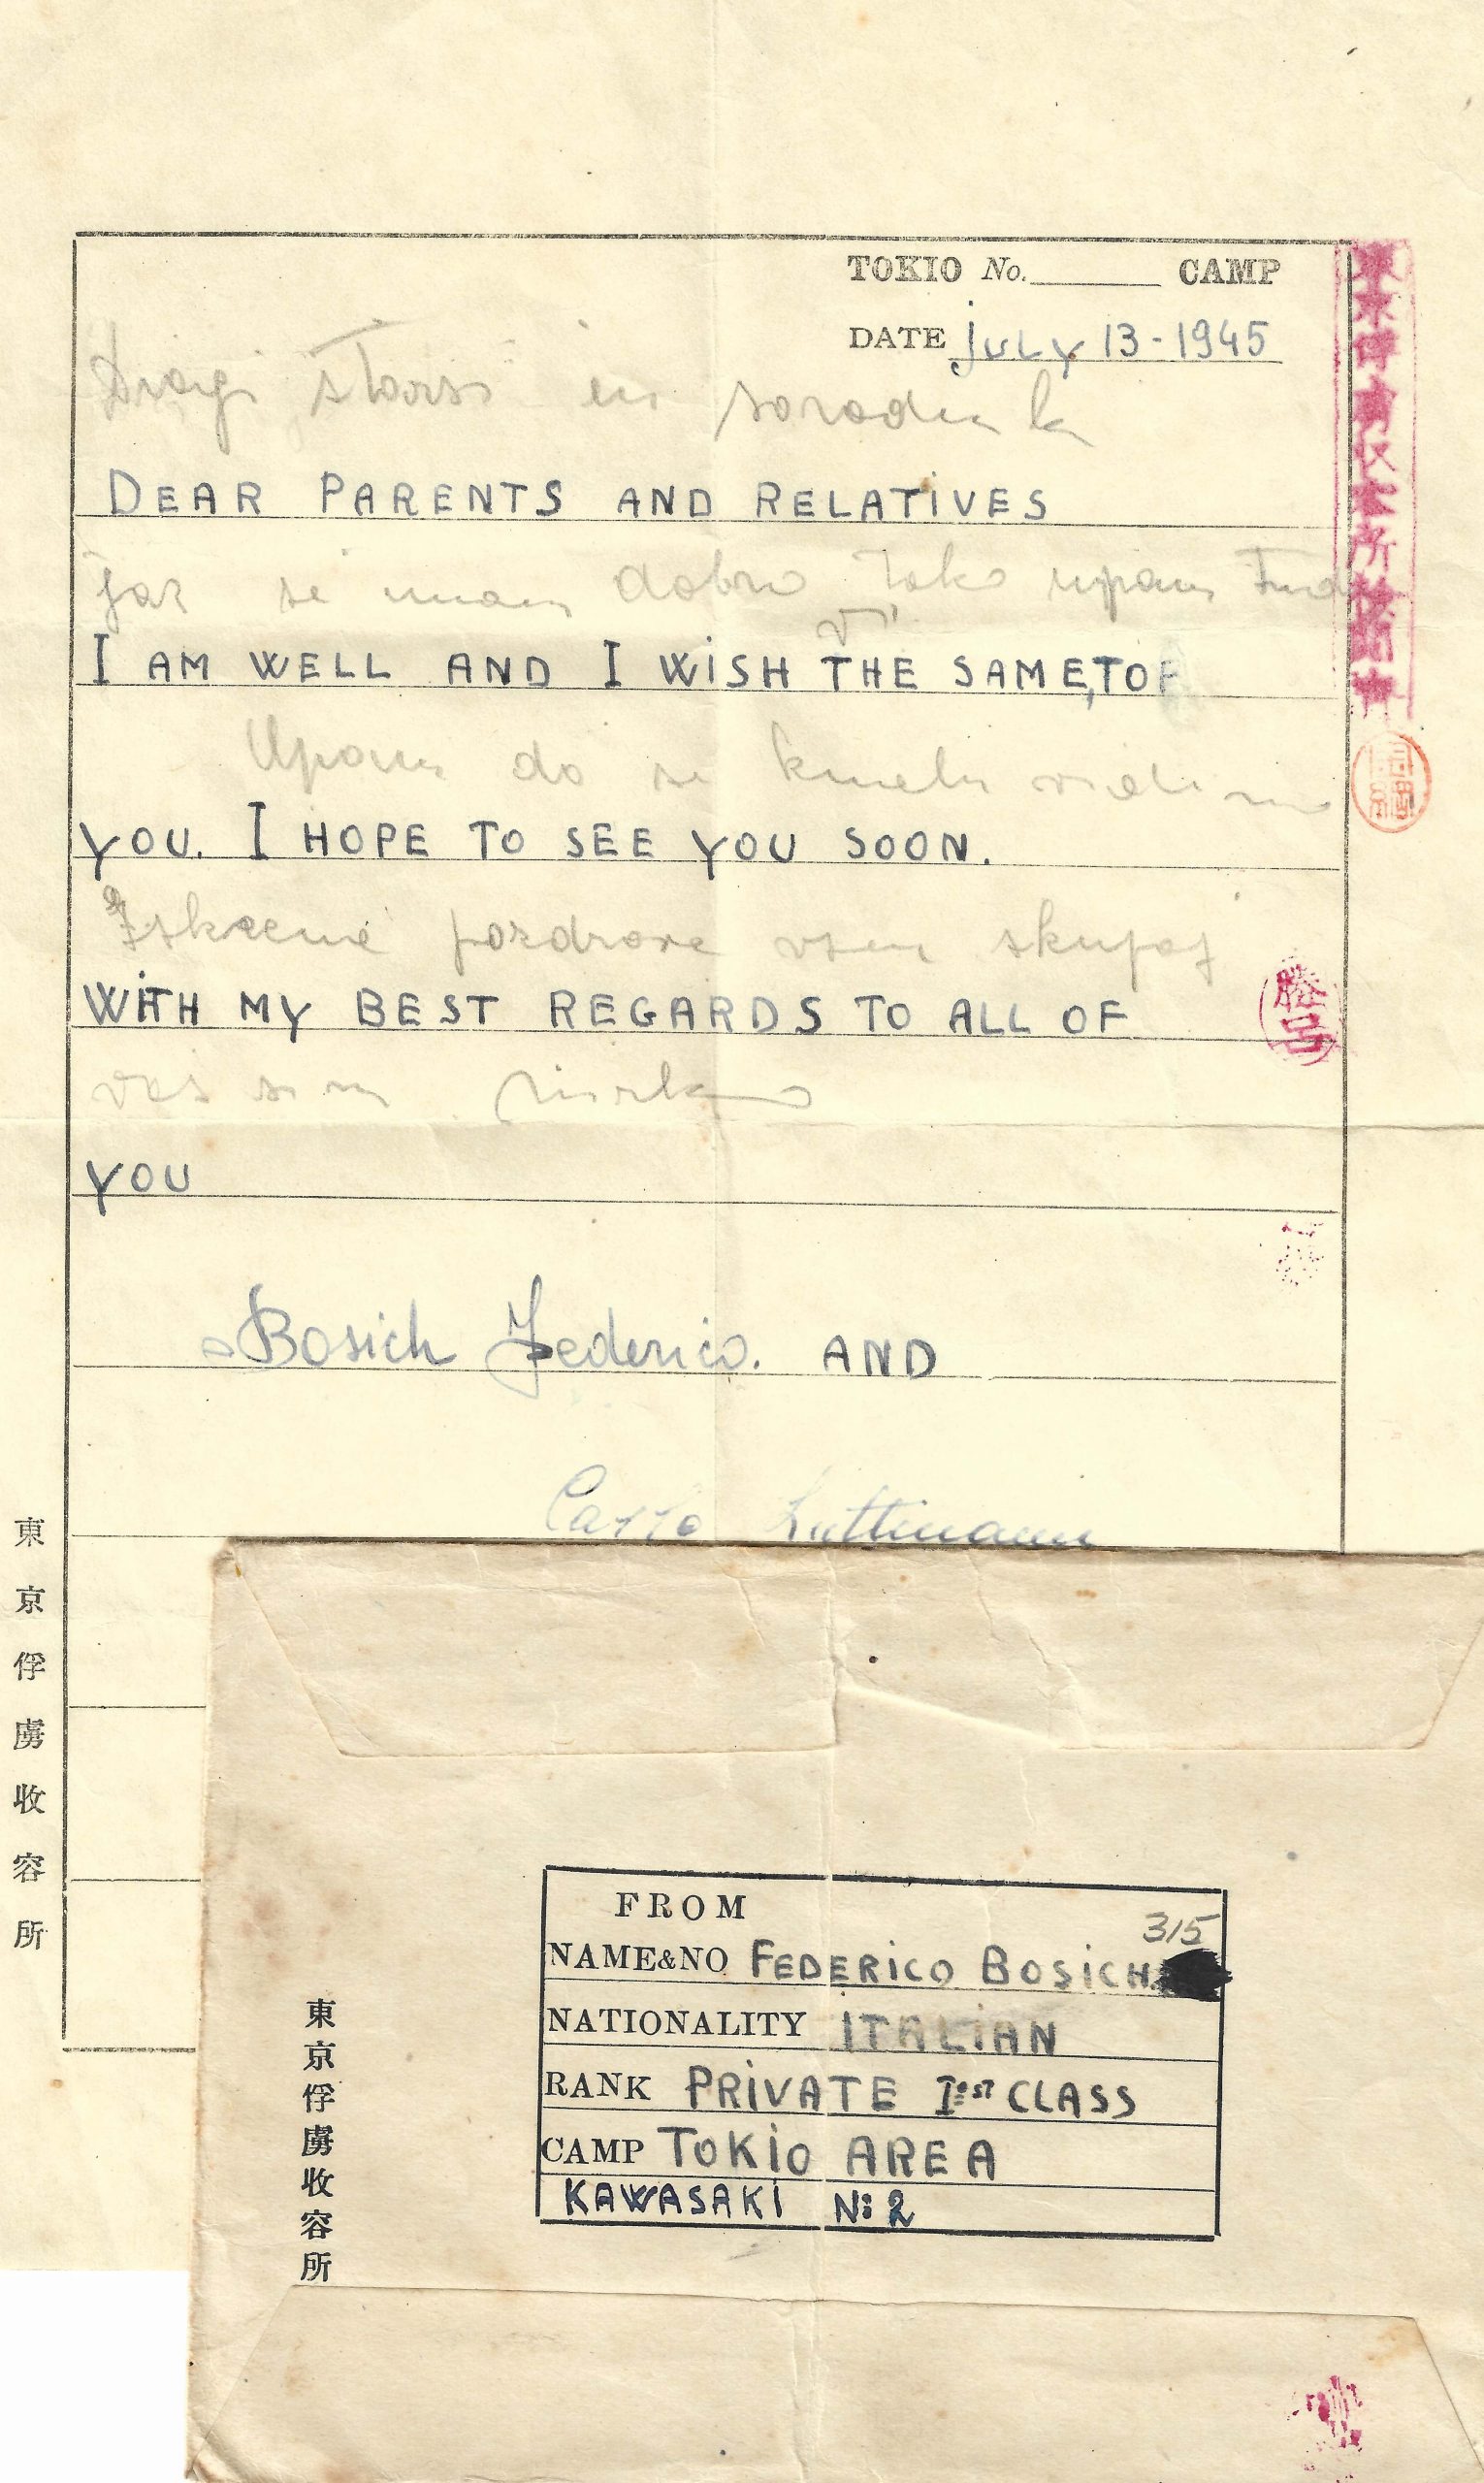 TOKIO No. CAMP
DATE July 13-1945
Dragi starsi in sorodniki
DEAR PARENTS AND RELATIVES
Jaz se imam dobro Tako upam Tud
vi
I AM WELL AND I WISH THE SAME, TO
Upam da se kmalu vidimo
YOU. I HOPE TO SEE YOU SOON.
Iskrene pozdrave vsem skupaj
WITH MY BEST REGARDS TO ALL OF
vaš sin Mirko
YOU
Bosich Federico. AND
Carlo Luttmann
東京俘虜収容所
FROM
315
NAME&NO FEDERICO BOSICH
NATIONALITY ITALIAN
RANK PRIVATE Iº ST CLASS
CAMP TOKIO AREA
KAWASAKI N: 2
東京俘虜収容所
東京俘虜収容所検閲車